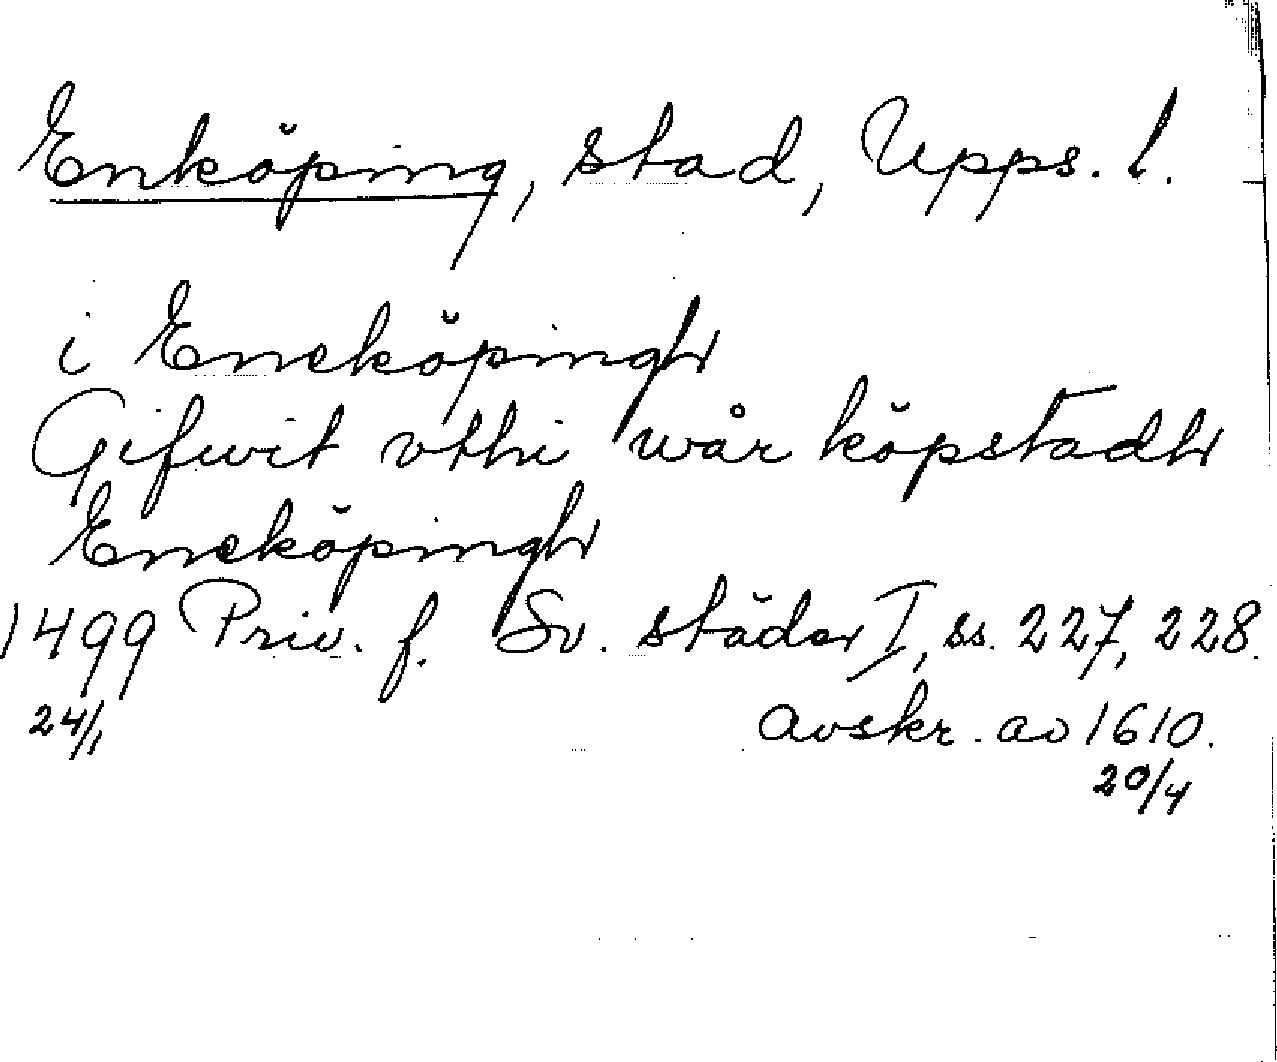 Enköping, stad, Upps. l.
i Eneköpingh
Gifwit vthi wår köpstadh
Eneköpingh
1499 Priv. f. Sv. städer I, ss. 227, 228.
24/1 avskr. av 1610.
20/4